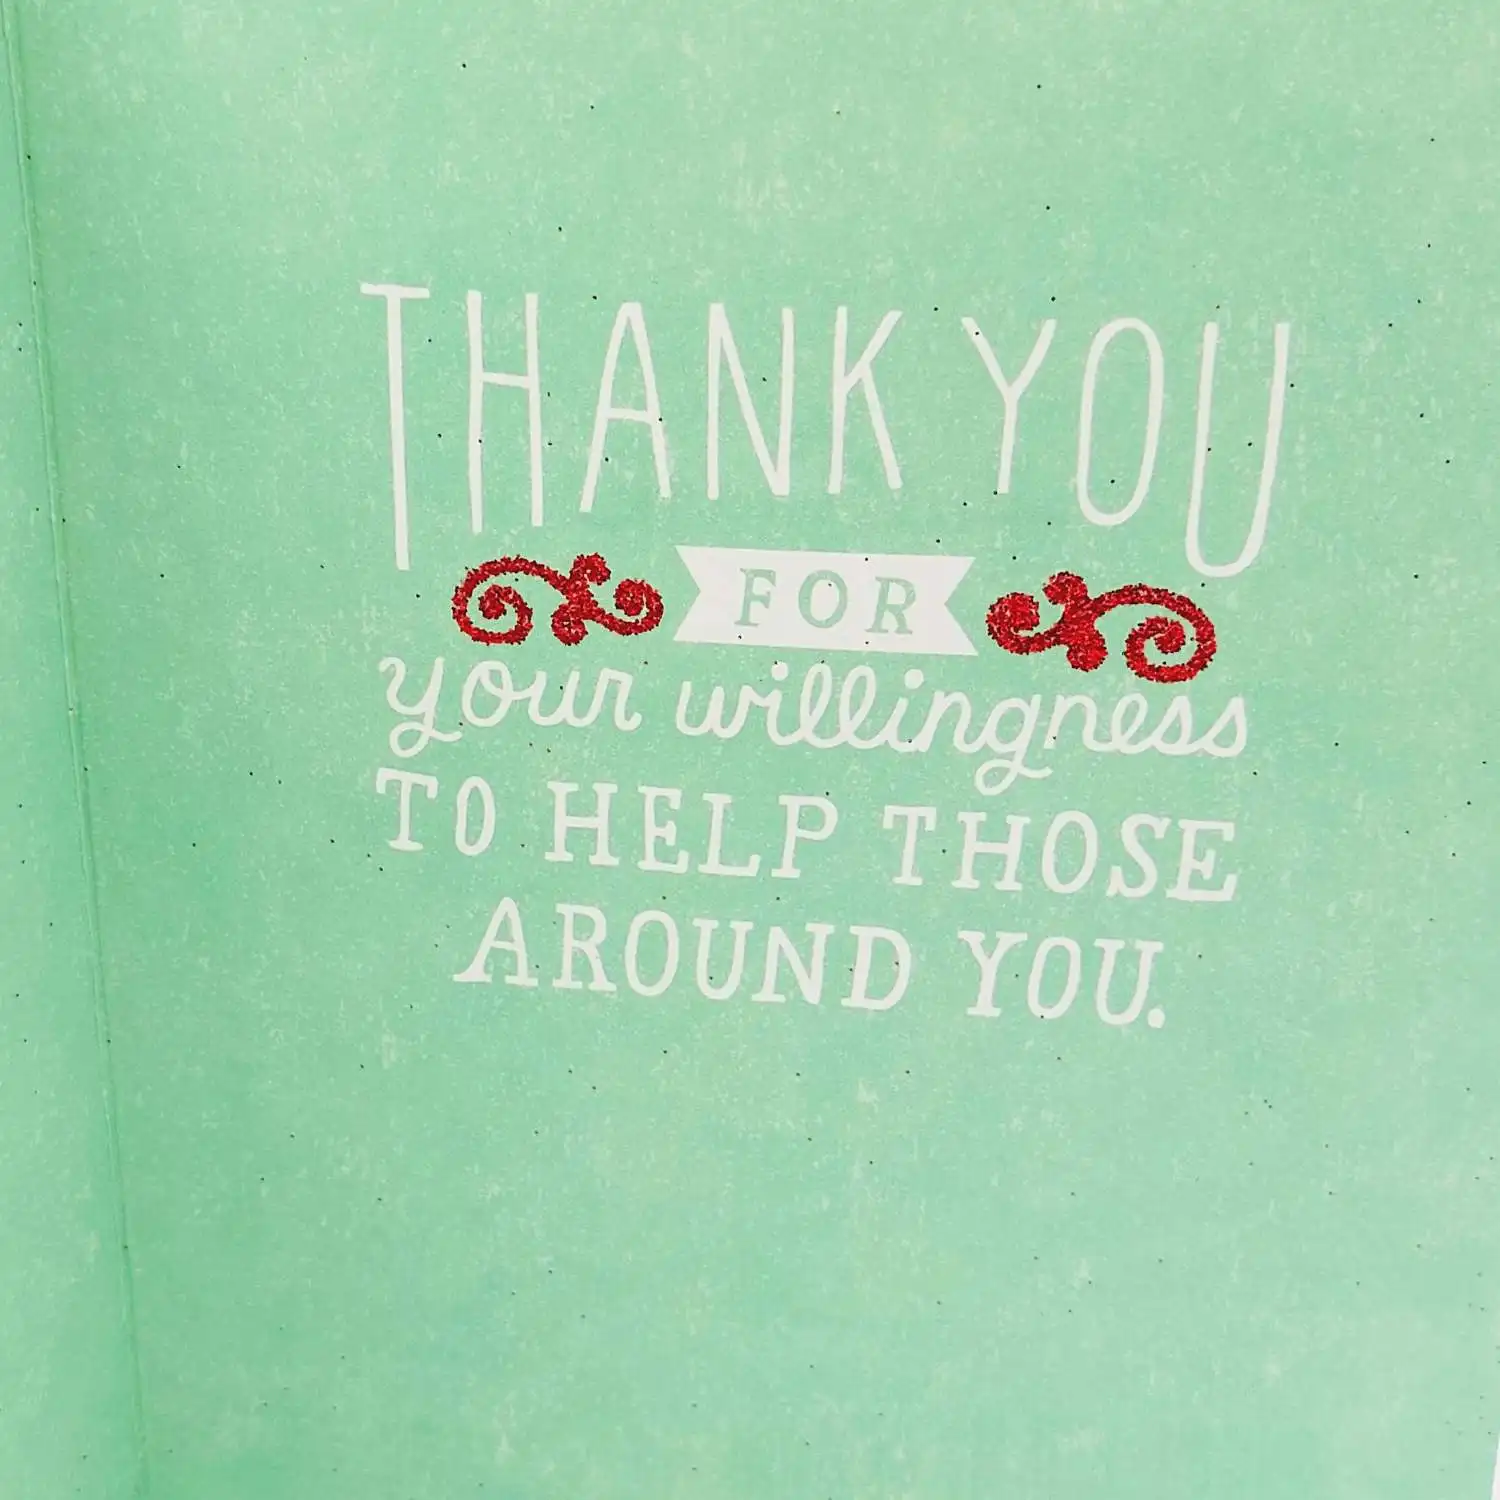 THANK YOU
FOR
your willingness
TO HELP THOSE
AROUND YOU.